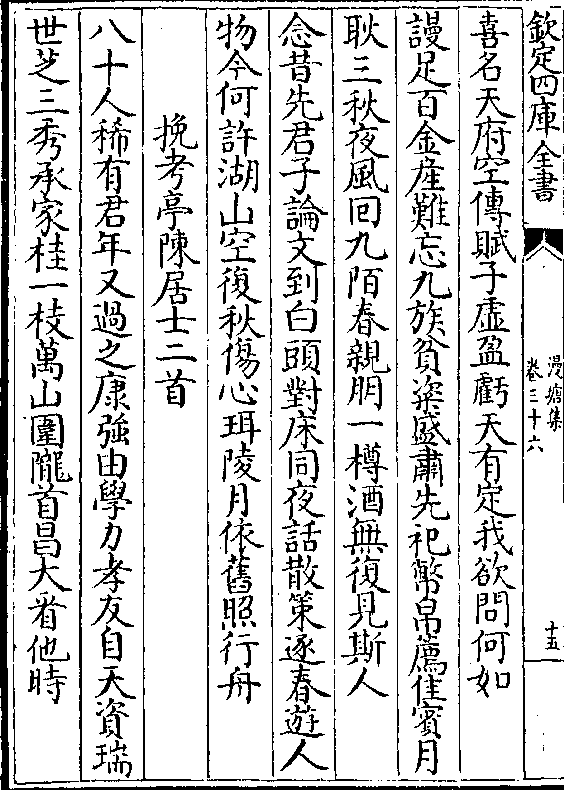 欽定四庫全書
漫塘集
卷三十六
十五
喜名天府空傳賦子虛盈虧天有定我欲問何如
謾足百金産難忘九族貧粢盛肅先祀幣帛薦佳賓月
耿三秋夜風回九陌春親朋一樽酒無復見斯人
念昔先君子論文到白頭對床同夜話散策逐春遊人
物今何許湖山空復秋傷心珥陵月依舊照行舟
挽考亭陳居士二首
八十人稀有君年又過之康強由學力孝友自天資瑞
世芝三秀承家桂一枝萬山圍隴首昌大看他時